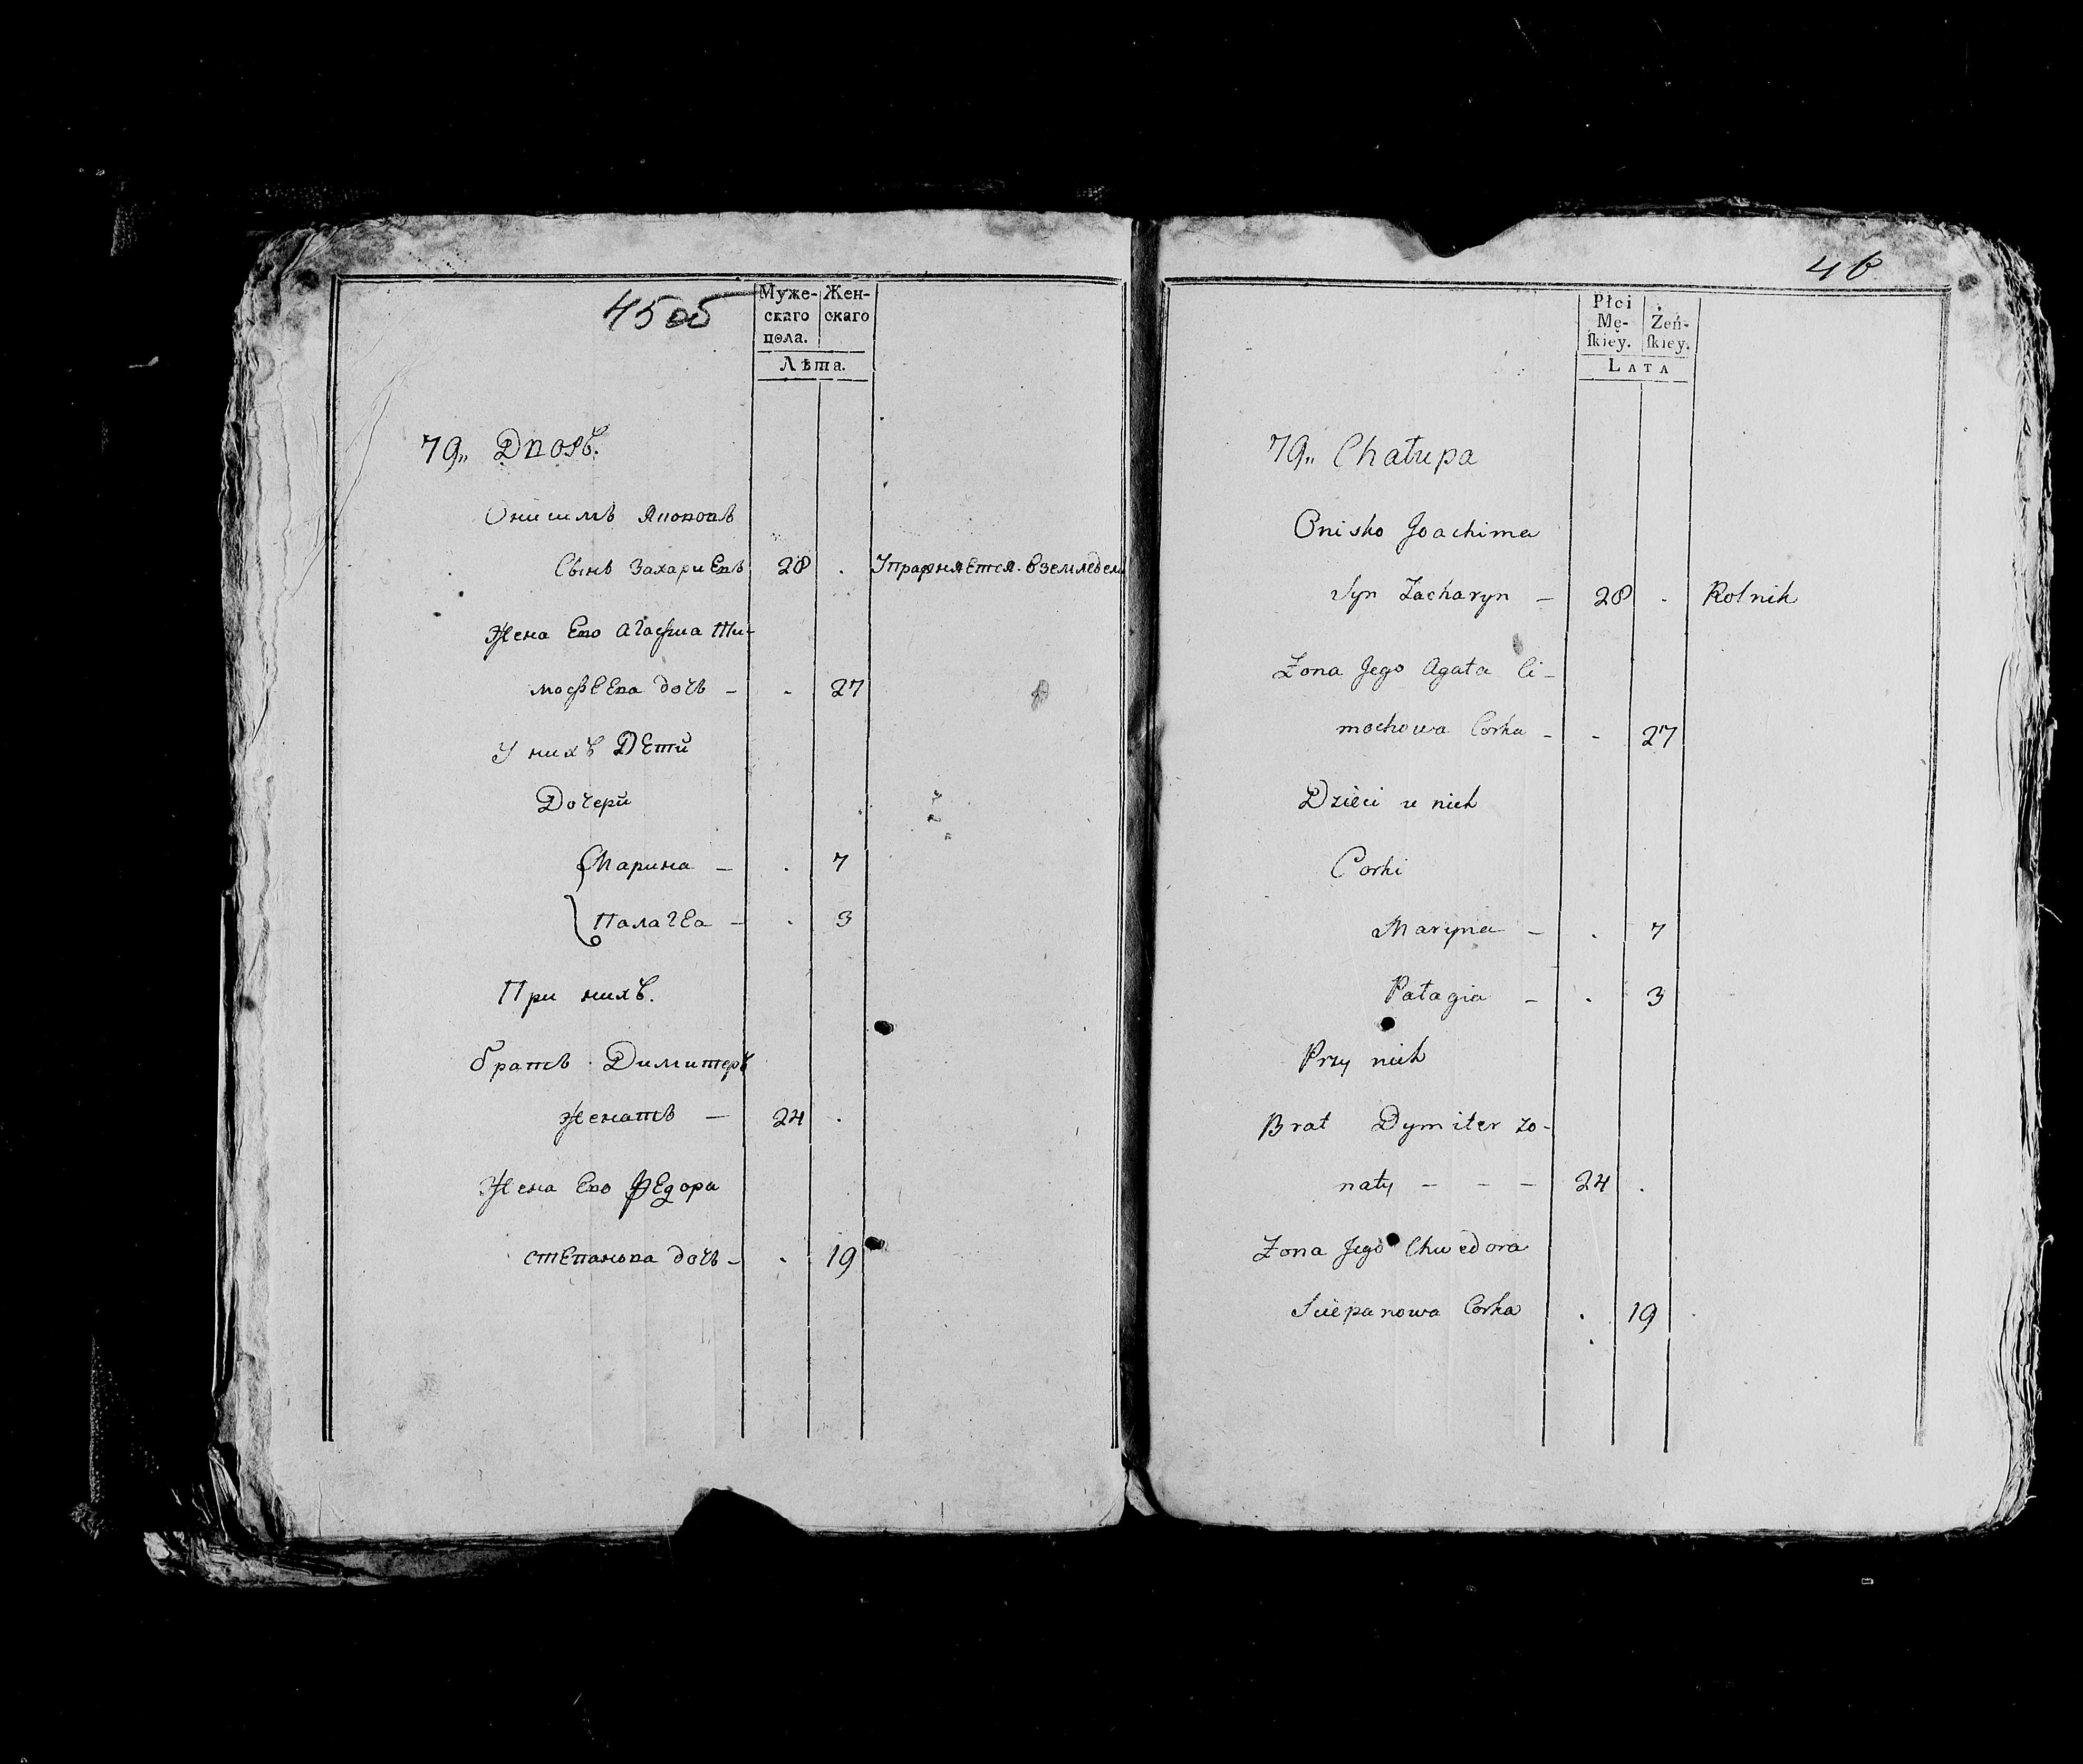 45об
Муже-
скаго
пола.
Жен-
скаго
Лѣта.
79„ Дворъ.
Онисимъ Якововъ
Сынъ Захариевъ 28 . Упражняется в земледел
Жена Ево Агафиа Ти-
мофѣева дочь - - 27
У нихъ Дети
Дочери
Марина - . 7
Палагеа - . 3
При нихъ.
братъ Димитеръ
женатъ - 24 .
Жена Ево Федора
степанова дочь - - 19
46
Płci
Mę-
ſkiey.
Żeń-
ſkiey.
LATA
79„ Chałupa
Onisko Joachima
Syn Zacharyn - 28 . Rolnik
Zona Jego Agata Ci-
mochowa Corka - - 27
Dzieci u nich
Corki
Maryna - . 7
Pałagia - . 3
Przy nich
Brat Dymiter zo-
naty - - - 24 .
Zona Jego Chwedora
Sciepanowa Corka . 19